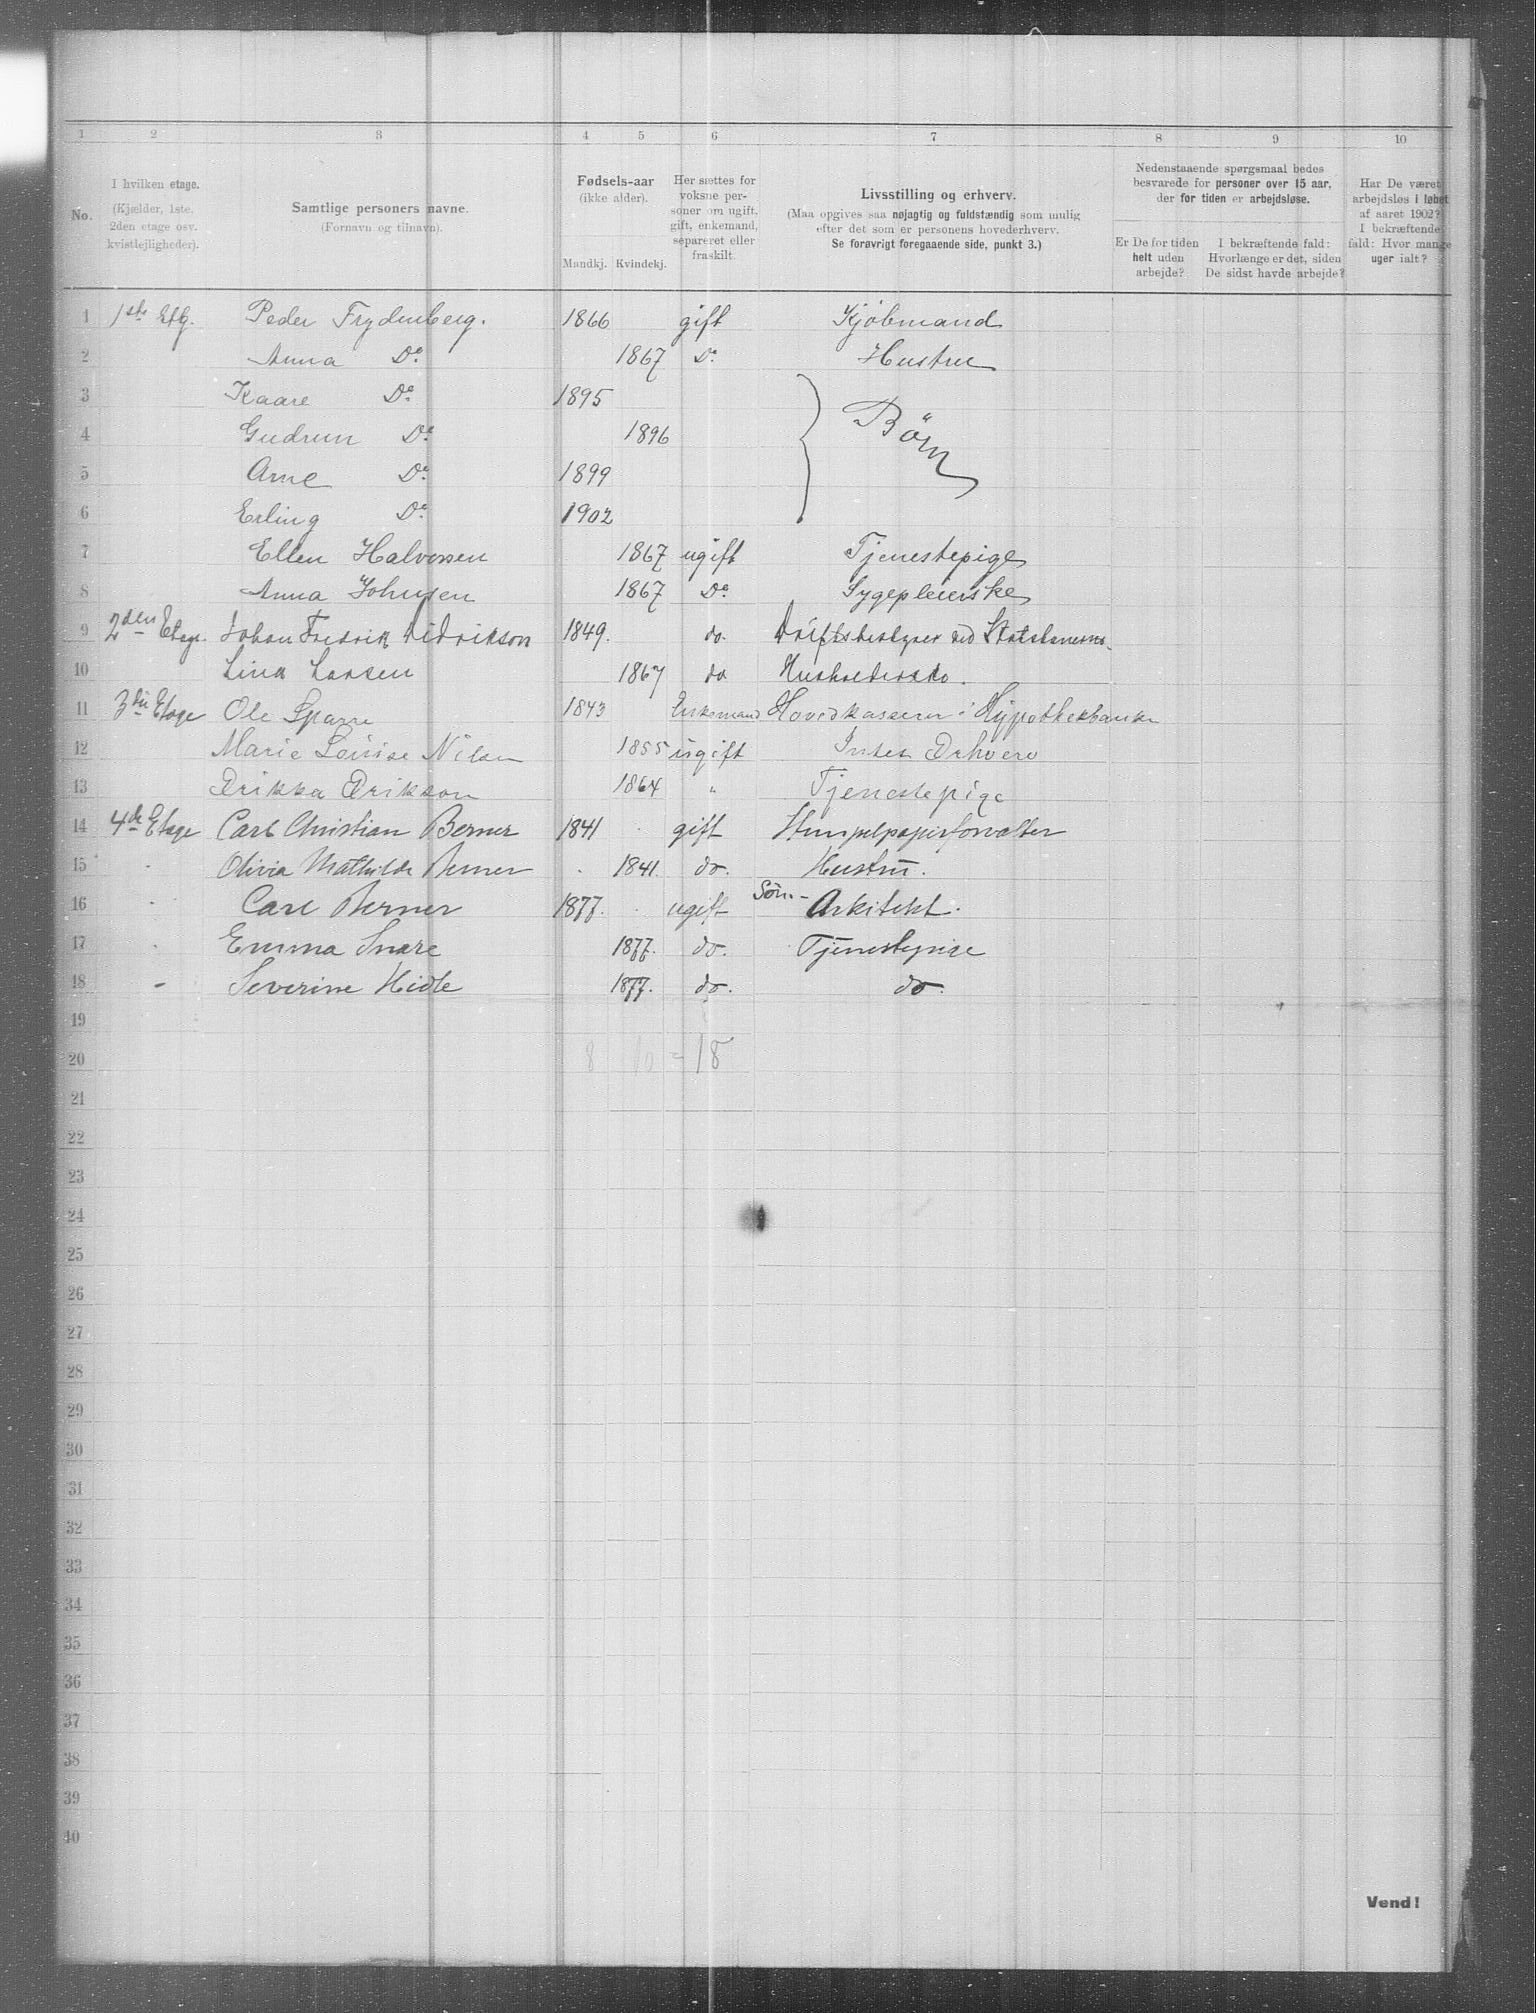 1 2 3 4 5 6 7 8 9 10
No.
I hvilken etage.
(Kjælder, 1ste.
2den etage osv.
kvistlejligheder).
Samtlige personers navne.
(Fornavn og tilnavn).
Fødsels-aar
(ikke alder).
Mandkj. Kvindekj.
Her sættes for
voksne per-
soner om ugift,
gift, enkemand,
separeret eller
fraskilt.
Livsstilling og erhverv.
(Maa opgives saa nøjagtig og fuldstændig som mulig
efter det som er personens hovederhverv.
Se forøvrigt foregaaende side, punkt 3.)
Nedenstaaende spørgsmaal bedes
besvarede for personer over 15 aar,
der for tiden er arbejdsløse.
Er De for tiden
helt uden
arbejde?
I bekræftende fald:
Hvorlænge er det, siden
De sidst havde arbejde?
Har De været
arbejdsløs i løbet
af aaret 1902?
I bekræftende
fald: Hvor mange
uger ialt?
1 1ste Etg. Peder Frydenberg. 1866 gift Kjöbmand
2 Anna Do. 1867 Do. Hustru
3 Kaare Do. 1895
4 Gudrun Do. 1896 Börn
5 Arne Do. 1899
6 Erling Do. 1902
7 Ellen Halvorsen 1867 ugift Tjenestepige
8 Anna Johnsen 1867 Do. Sygepleierske
9 2den Etage. Johan Fredrik Didrikson 1849. do. Driftsbestyrer ved Statsbanerne.
10 Lina Larsen 1867 do Husholderske.
11 3die Etage Ole Sparre 1843 Enkemand Hovedkasserer i Hypothekbanken
12 Marie Louise Nilsen 1855 ugift Intet Erhverv
13 Erikka Erikson 1864 " Tjenestepige
14 4de Etage Carl Christian Berner 1841 gift Stempelpapirforvalter
15 Olivia Mathilde Berner 1841. do. Hustru.
16 Carl Berner 1877. ugift Sön.- Arkitekt.
17 Emma Snare 1877. do. Tjenestepige
18 - Severine Hidle 1877. do. do.
19
20 8 10 = 18
21
22
23
24
25
26
27
28
29
30
31
32
33
34
35
36
37
38
39
40
Vend!